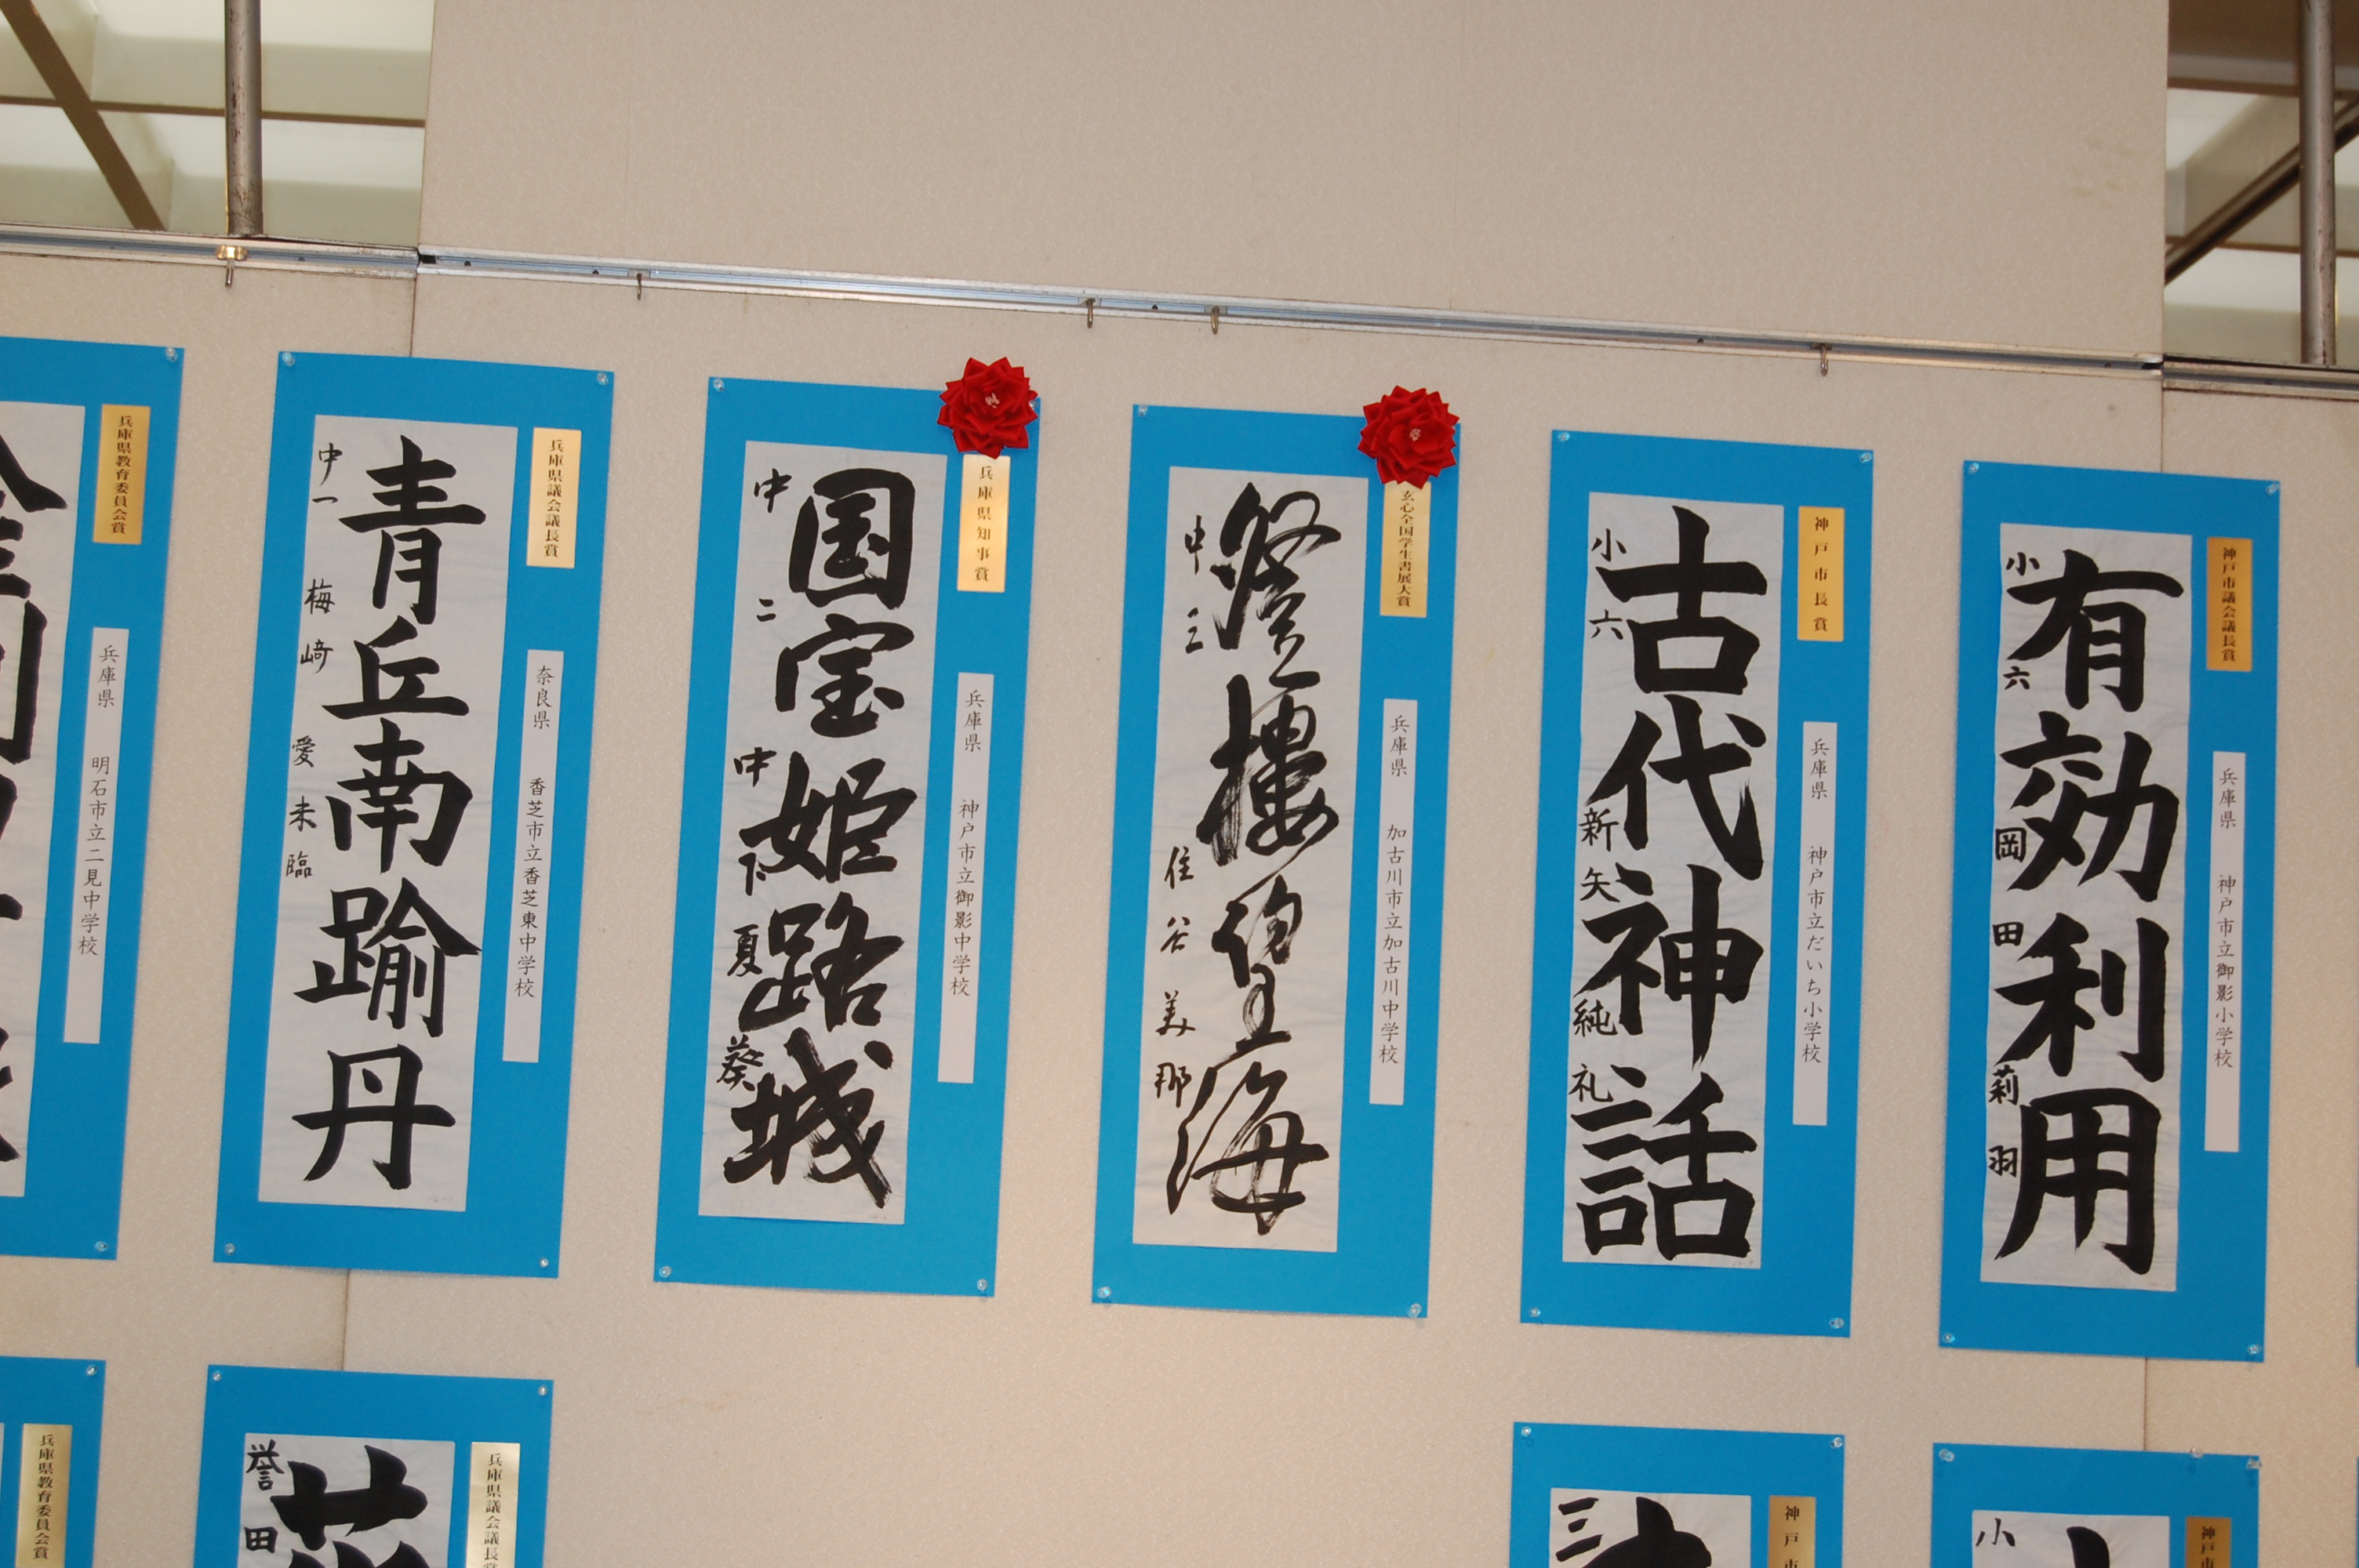 神戸市議会議長賞
兵庫県 神戸市立御影小学校
有効利用
小六 岡田莉羽
神戸市長賞
兵庫県 神戸市立だいち小学校
古代神話
小六 新矢純礼
玄心全国学生書展大賞
兵庫県 加古川市立加古川中学校
海
中三 住谷美那
兵庫県知事賞
兵庫県 神戸市立御影中学校
国宝姫路城
中二 中下夏葵
兵庫県議会議長賞
奈良県 香芝市立香芝東中学校
青丘南踰丹
中一 梅﨑愛未臨
兵庫県教育委員会賞
兵庫県 明石市立二見中学校
小
神戸市
三
兵庫県議会議長賞
誉田
兵庫県教育委員会賞